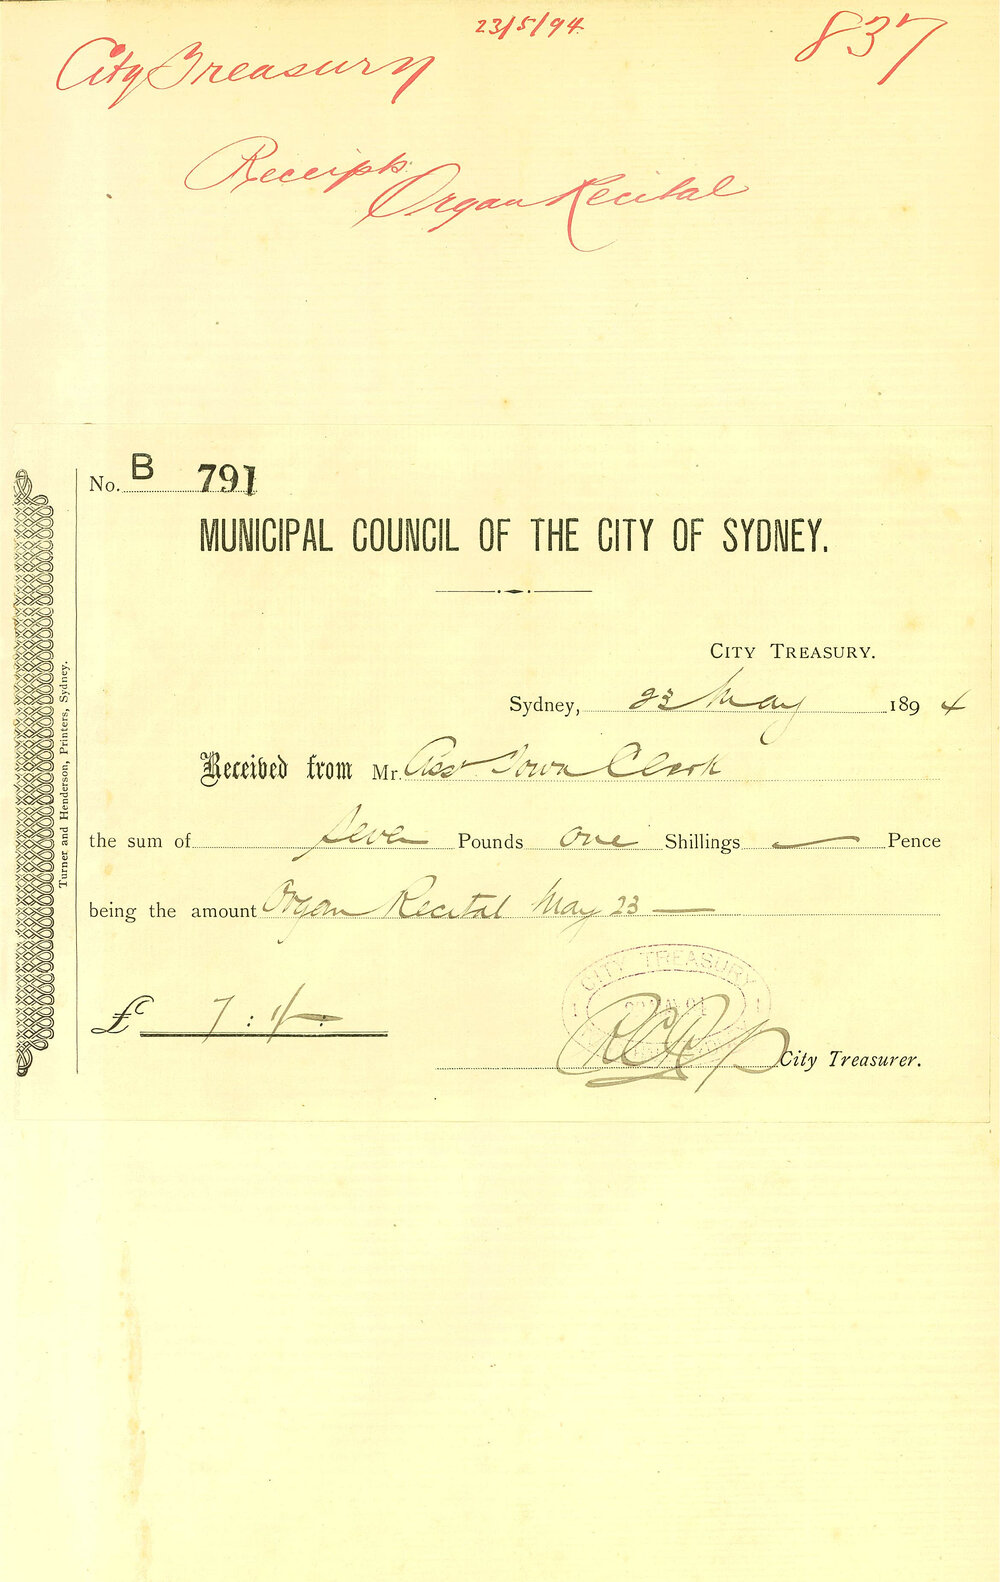 23/5/94
837
City Treasury
Receipts
Organ Recital
No. B 791
MUNICIPAL COUNCIL OF THE CITY OF SYDNEY.
CITY TREASURY.
Sydney, 23 May 1894
Received from Mr. Asst Town Clerk
the sum of seven Pounds one Shillings — Pence
being the amount Organ Recital May 23 —
CITY TREASURY
£ 7 : 1/- :
City Treasurer.
Turner and Henderson, Printers, Sydney.